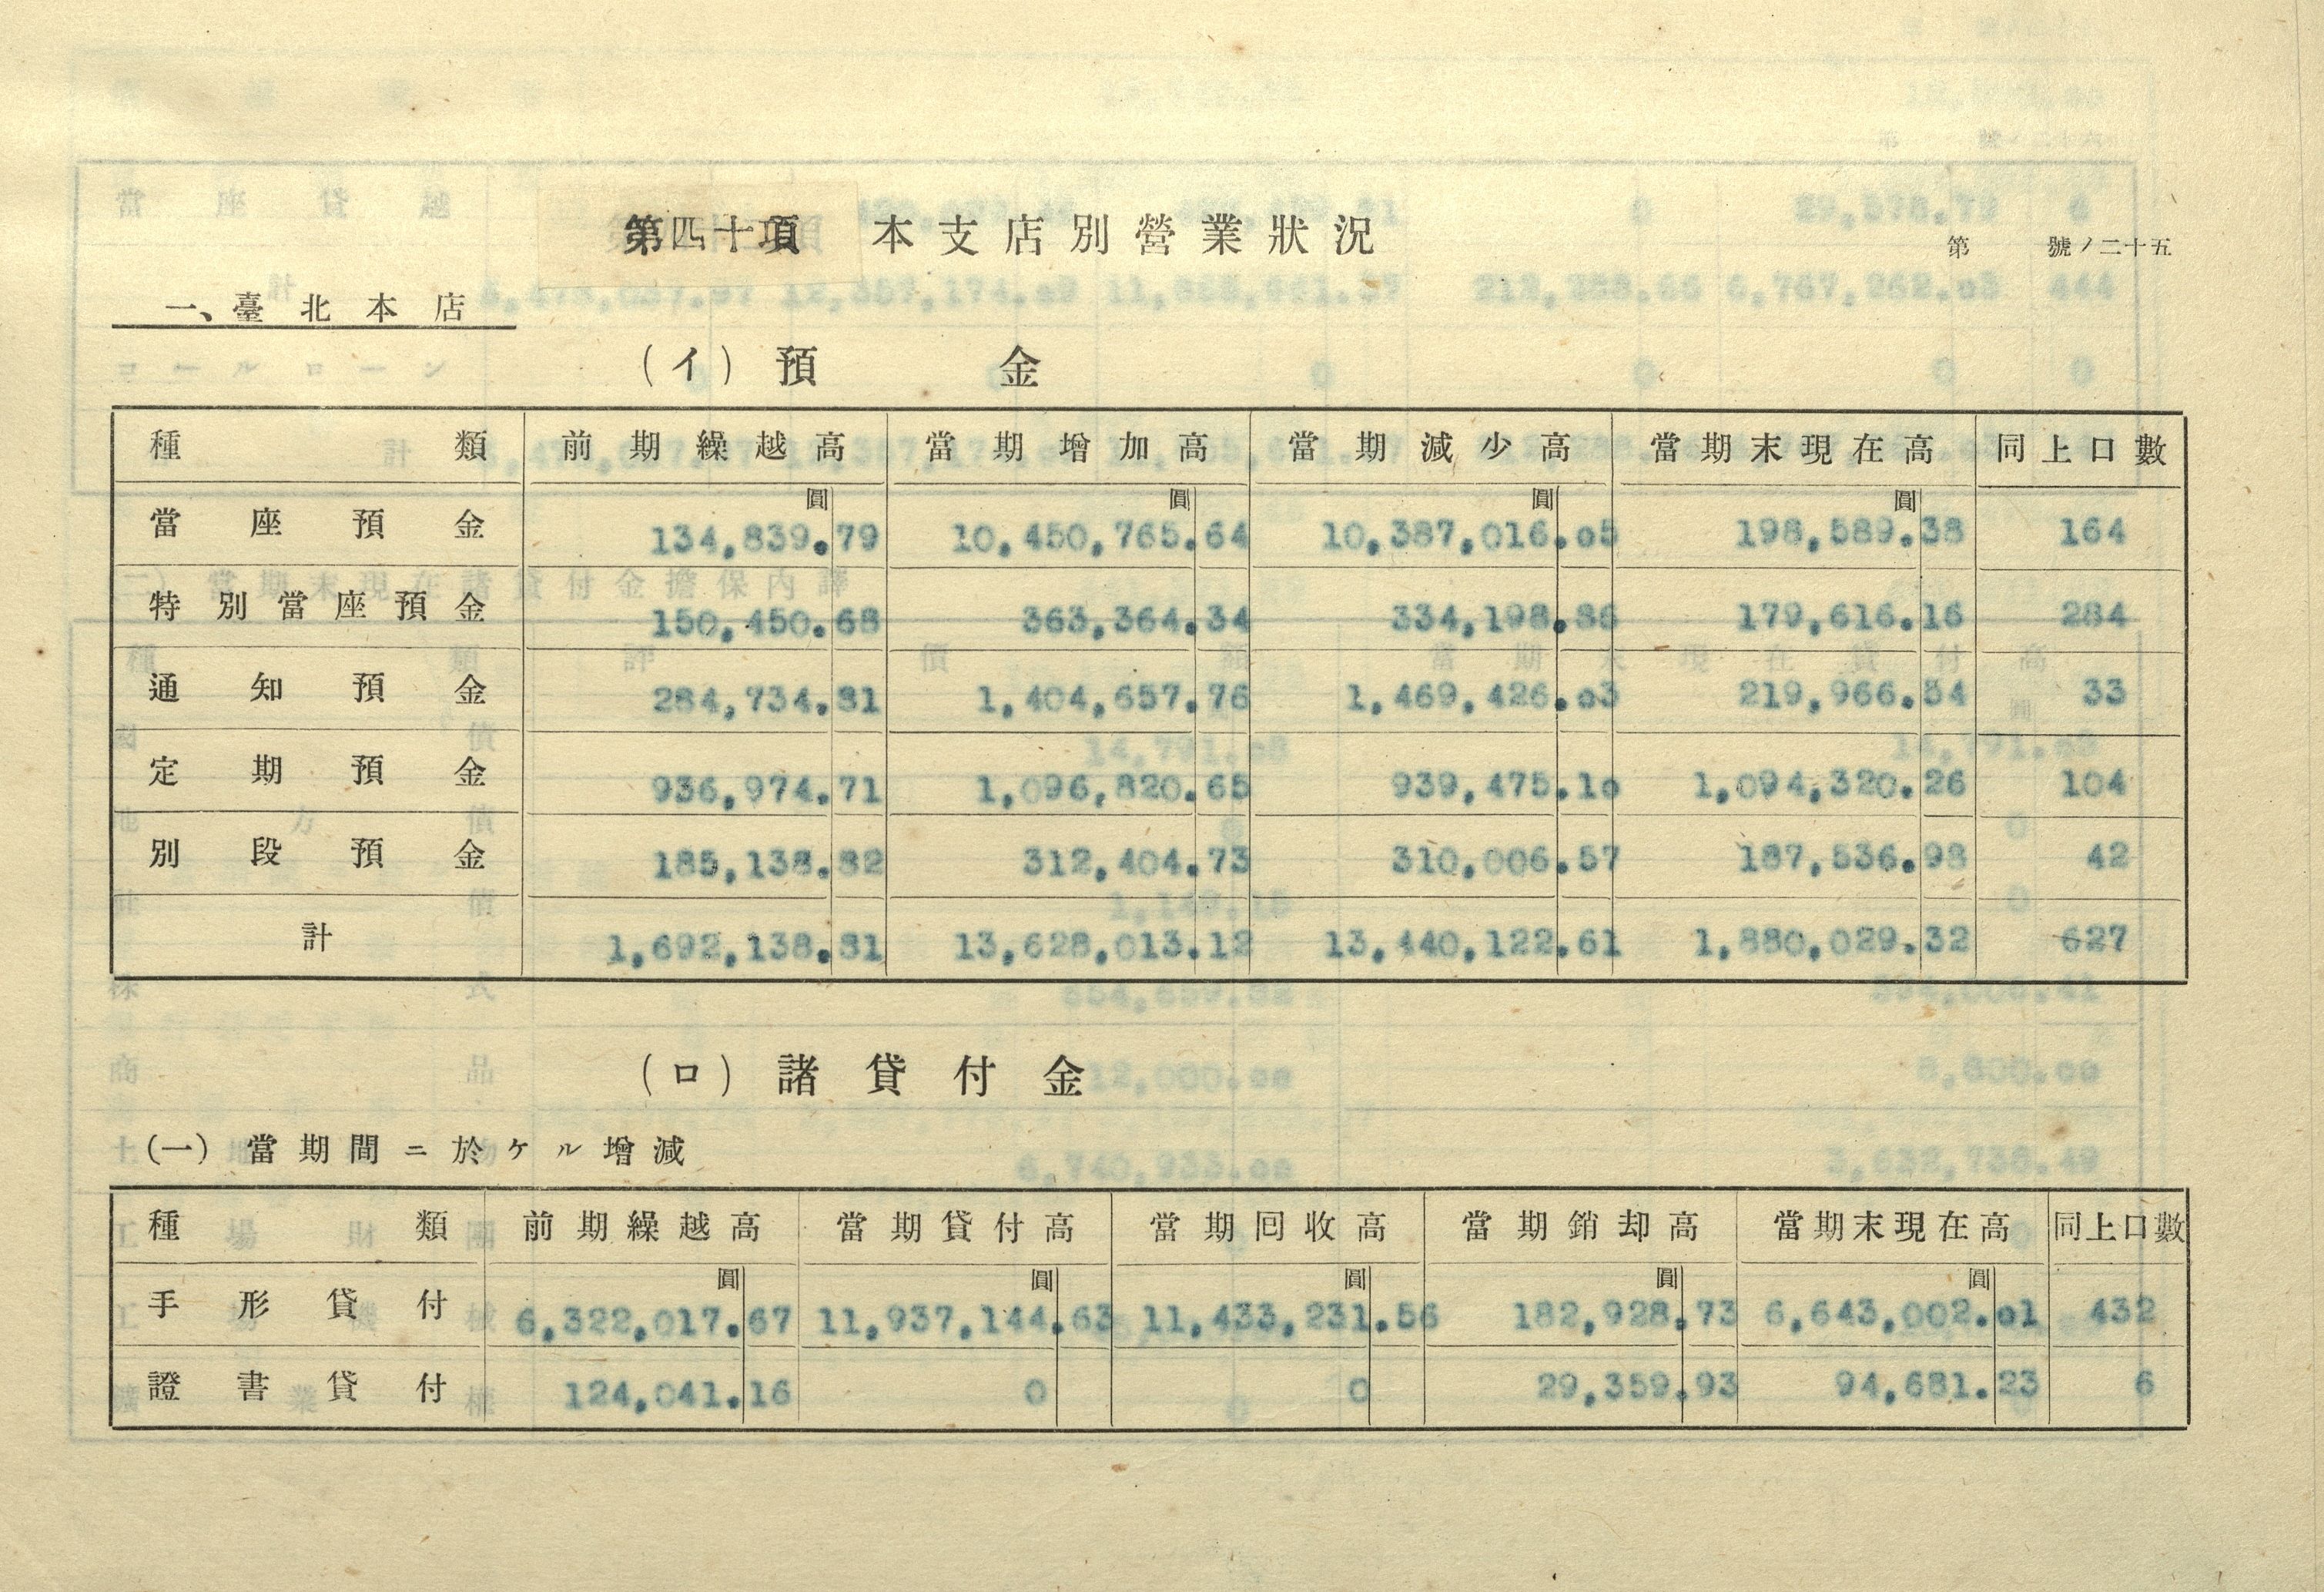 第四十項 本支店別營業狀況
第 號ノ二十五
一、臺北本店
(イ) 預金
種類 前期繰越高 當期增加高 當期減少高 當期末現在高 同上口數
圓 圓 圓 圓
當座預金 134,839.79 10,450,765.64 10,387,016.05 198,589.38 164
特別當座預金 150,450.68 363,364.34 334,198.86 179,616.16 284
通知預金 284,734.81 1,404,657.76 1,469,426.03 219,966.54 33
定期預金 936,974.71 1,096,820.65 939,475.10 1,094,320.26 104
別段預金 185,138.82 312,404.73 310,006.57 187,536.98 42
計 1,692,138.81 13,628,013.12 13,440,122.61 1,880,029.32 627
(ロ) 諸貸付金
(一) 當期間ニ於ケル增減
種類 前期繰越高 當期貸付高 當期回收高 當期銷却高 當期末現在高 同上口數
圓 圓 圓 圓 圓
手形貸付 6,322,017.67 11,937,144.63 11,433,231.56 182,928.73 6,643,002.01 432
證書貸付 124,041.16 0 0 29,359.93 94,681.23 6